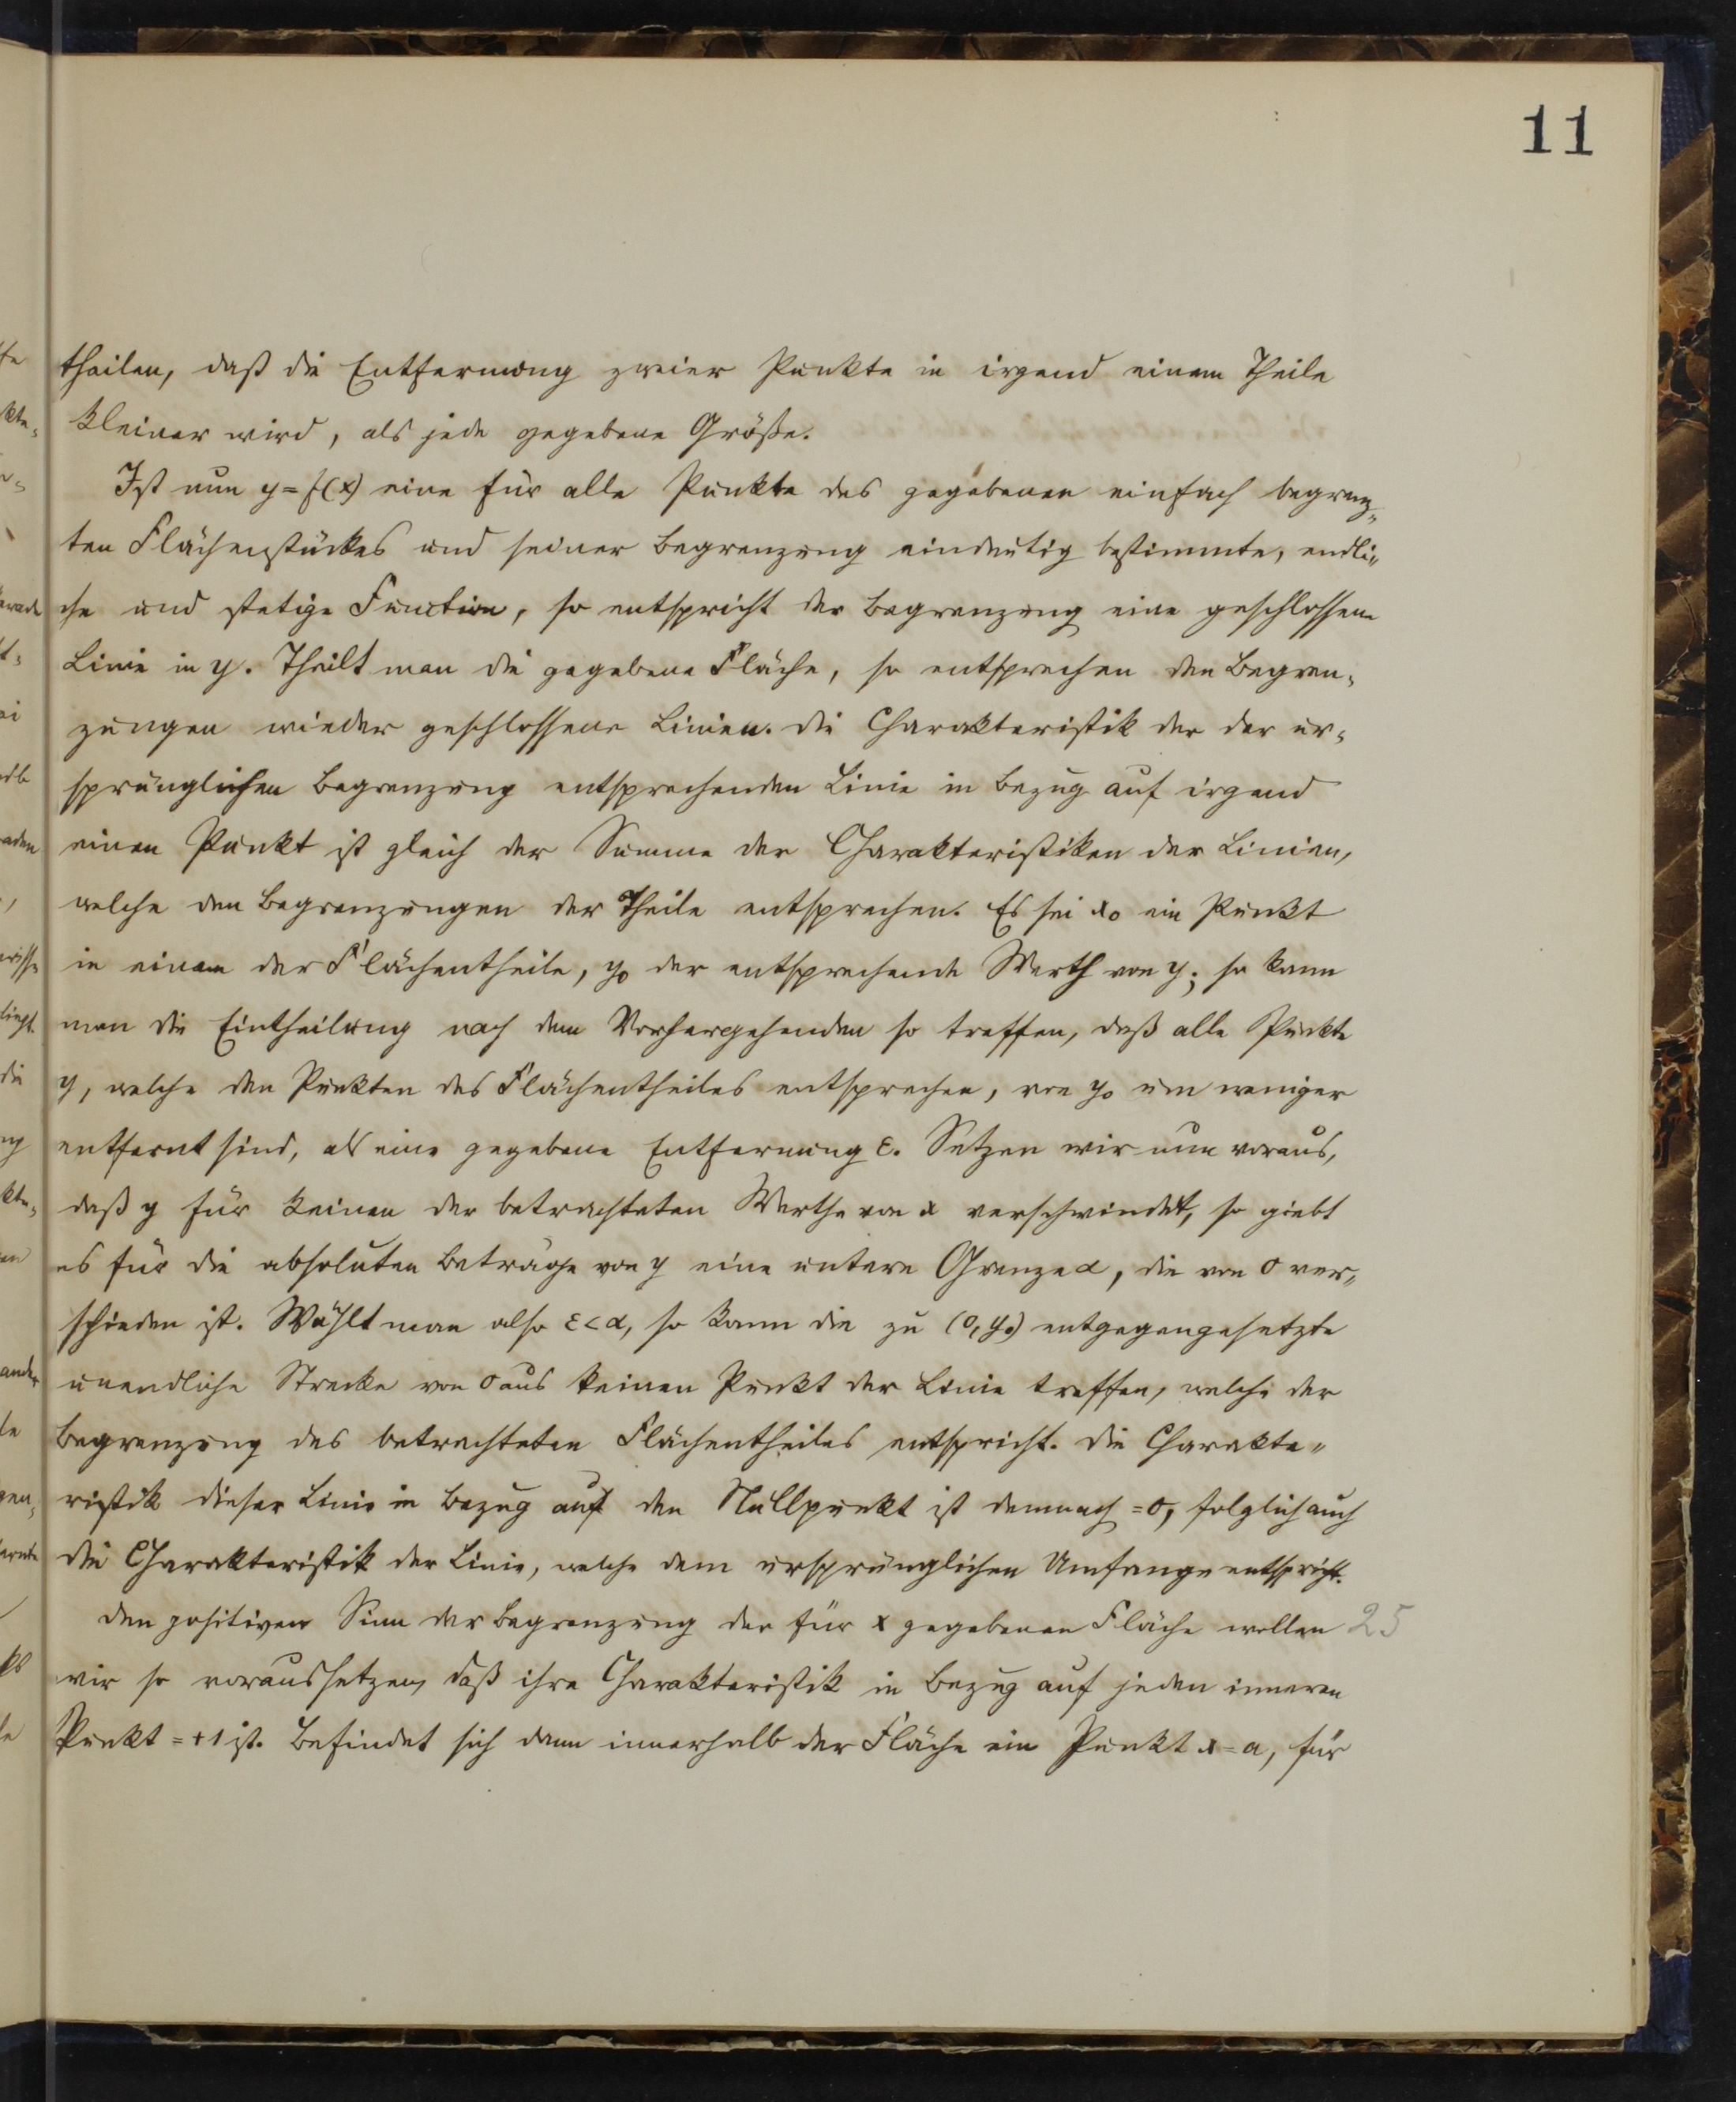 11
theilen, daß die Entfernung zweier Punkte in irgend einem Theile
kleiner wird, als jede gegebene Größe.
Ist nun y = f(x) eine für alle Punkte des gegebenen einfach begrenz„
ten Flächenstückes und seiner Begrenzung eindeutig bestimmte, endli„
che und stetige Function, so entspricht der Begrenzung eine geschlossene
Linie in y. Theilt man die gegebene Fläche, so entsprechen den Begren„
zungen wieder geschlossene Linien. Die Charakteristik der der ur„
sprünglichen Begrenzung entsprechenden Linie in Bezug auf irgend
einen Punkt ist gleich der Summe der Charakteristiken der Linien,
welche den Begrenzungen der Theile entsprechen. Es sei x₀ ein Punkt
in einem der Flächentheile, y₀ der entsprechende Werth von y; so kann
man die Eintheilung nach dem Vorhergehenden so treffen, daß alle Punkte
y, welche den Punkten des Flächentheiles entsprechen, von y₀ um weniger
entfernt sind, als eine gegebene Entfernung ε. Setzen wir nun voraus,
daß y für keinen der betrachteten Werthe von x verschwindet, so giebt
es für die absoluten Beträge von y eine untere Grenze α, die von 0 ver„
schieden ist. Wählt man also ε < α, so kann die zu (0, y₀) entgegengesetzte
unendliche Strecke von 0 aus keinen Punkt der Linie treffen, welche der
Begrenzung des betrachteten Flächentheiles entspricht. Die Charakte„
ristik dieser Linie in Bezug auf den Nullpunkt ist demnach = 0, folglich auch
die Charakteristik der Linie, welche dem ursprünglichen Umfange entspricht.
Den positiven Sinn der Begrenzung der für x gegebenen Fläche wollen 25
wir so voraussetzen, daß ihre Charakteristik in Bezug auf jeden inneren
Punkt = +1 ist. Befindet sich dann innerhalb der Fläche ein Punkt x = a, für